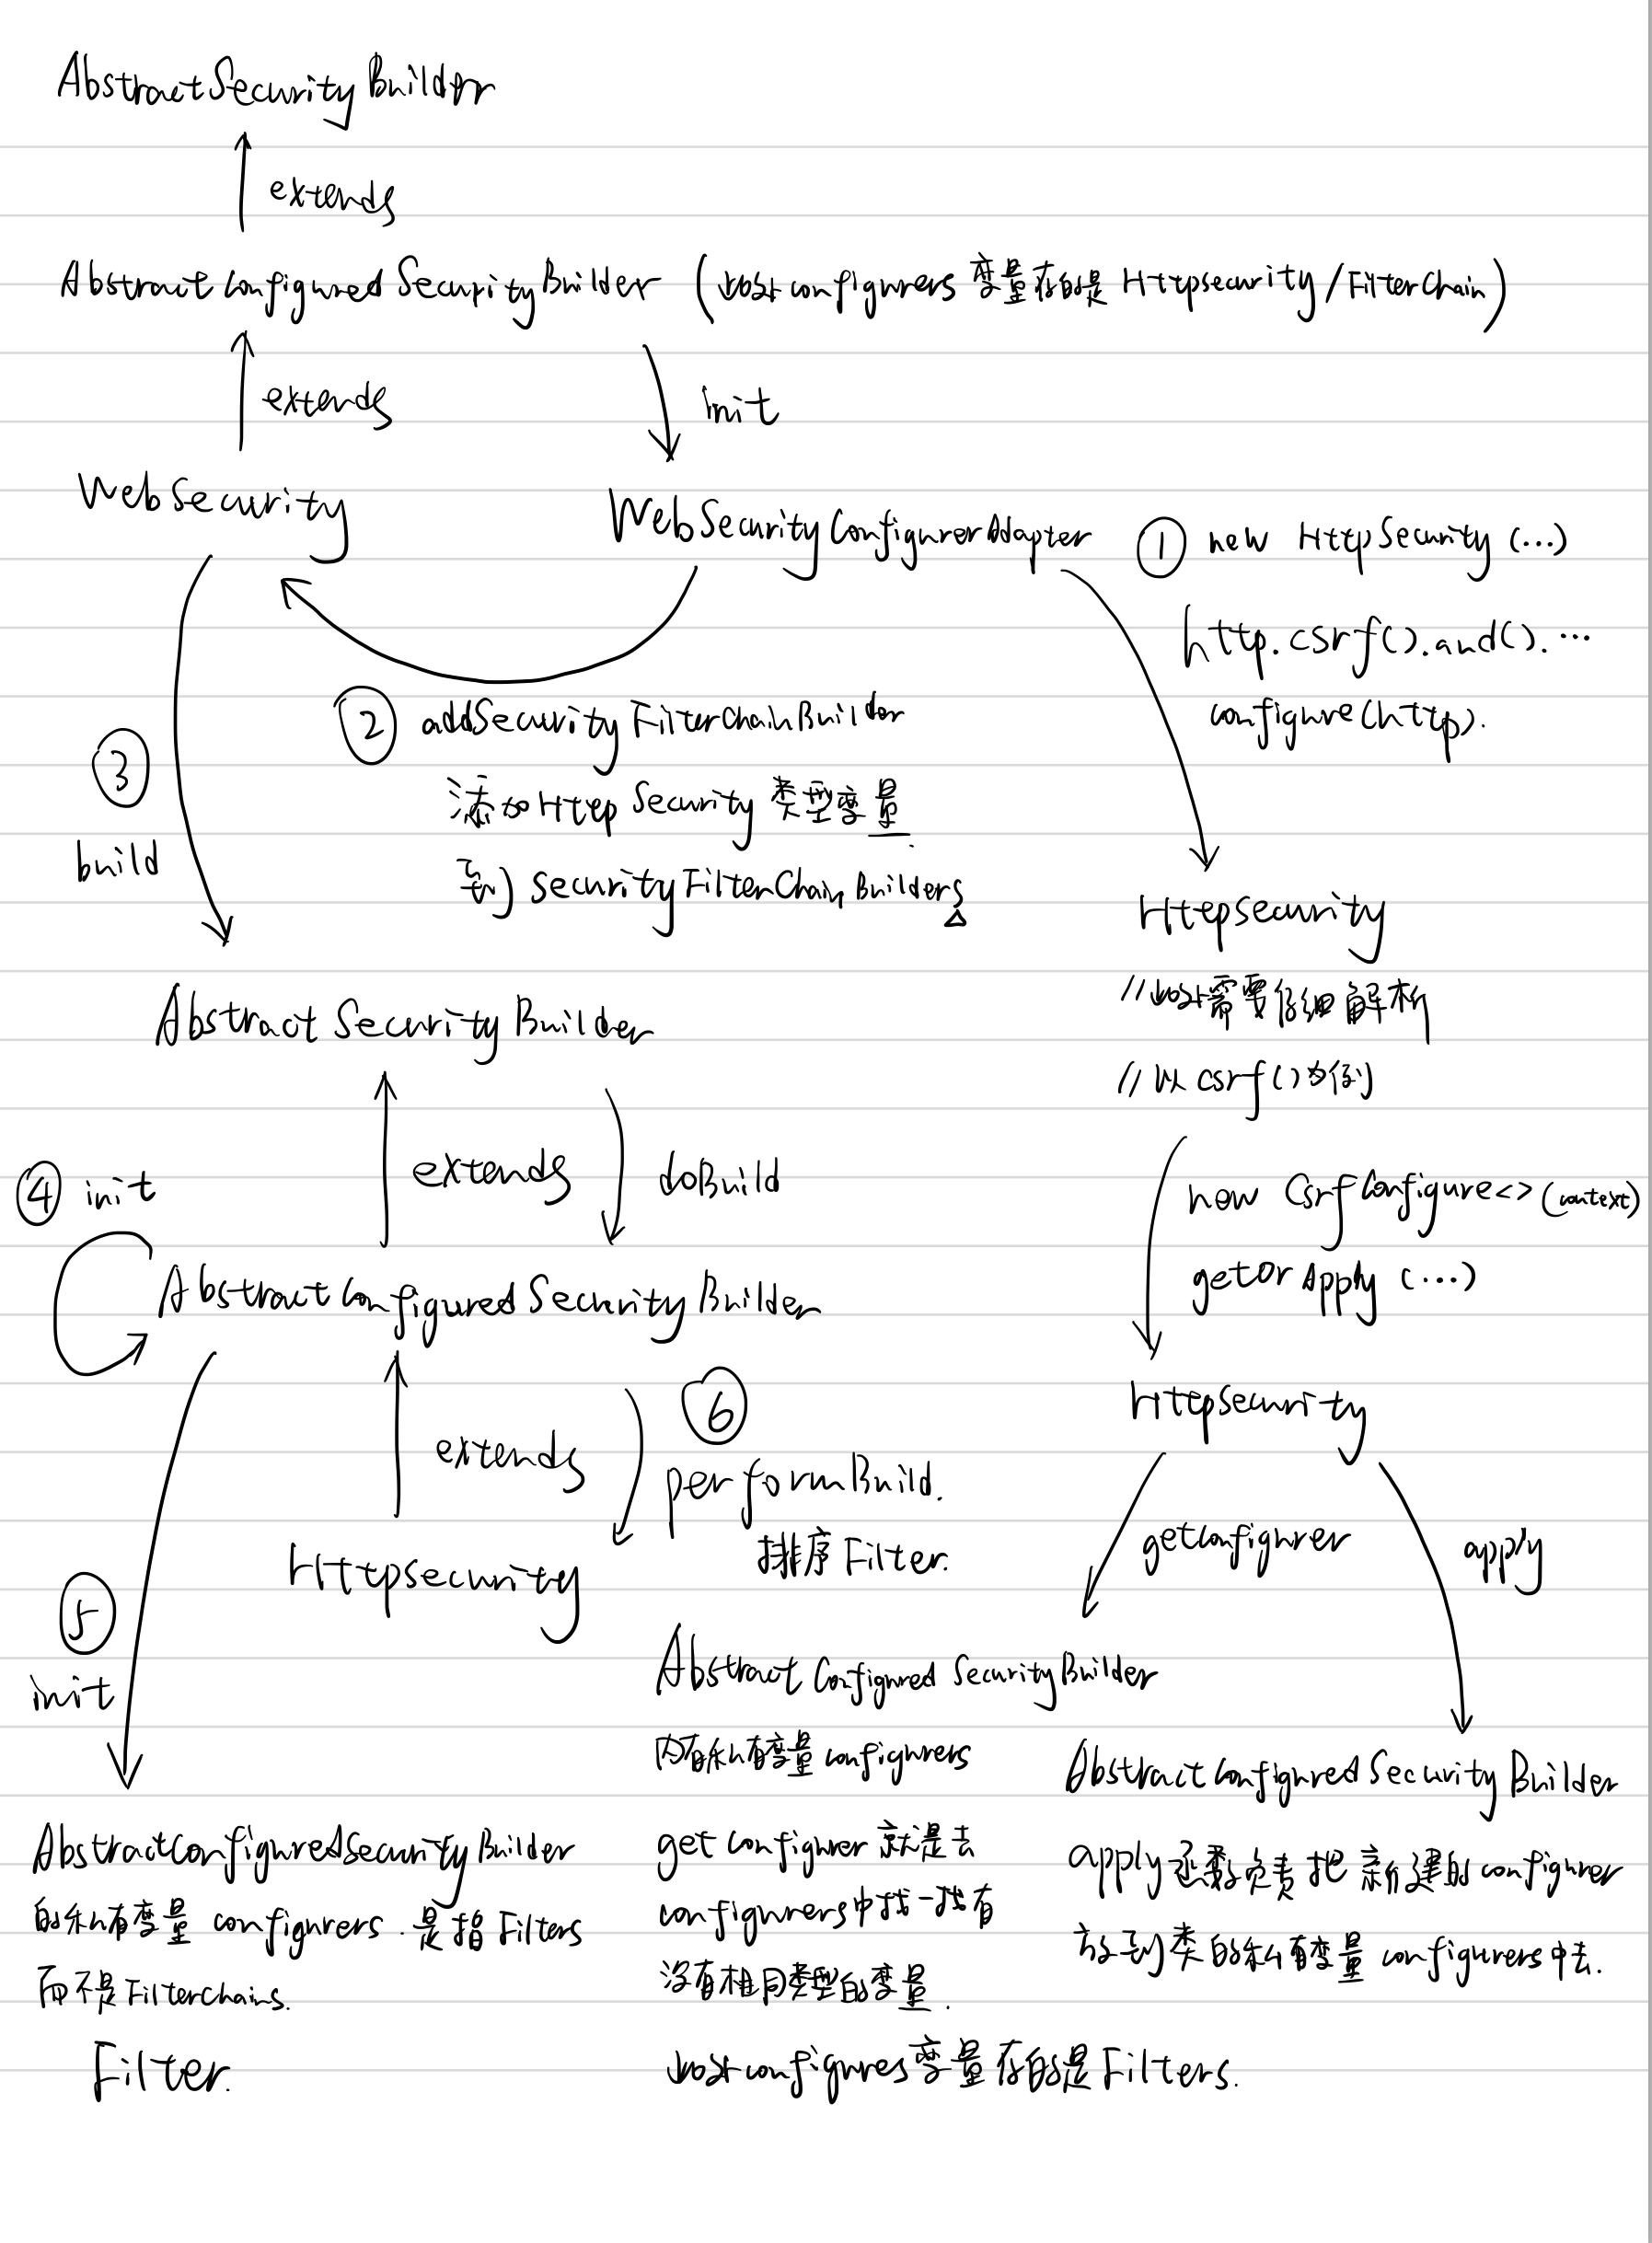 AbstractSecurityBuilder
extends
AbstractConfiguredSecurityBuilder (此时configurers 变量存的是 Httpsecurity/FilterChain)
extends
init
WebSecurity
WebSecurityConfigurerAdapter
① new HttpSecurity (...)
http.csrf().and(). ...
configure(http).
② addSecurityFilterChainBuilder
添加HttpSecurity 类型变量.
到 securityFilterChainBuilders
③
build
HttpSecurity
//此时需要仔细解析
//以csrf()为例
AbstractSecurityBuilder
extends
doBuild
④ init
new CsrfConfigure<>(context)
getOrApply (...)
AbstractConfiguredSecurityBuilder
HttpSecurity
extends
⑥
performBuild.
排序Filter.
HttpSecurity
getConfigurer
apply
⑤
init
AbstractConfiguredSecurityBuilder
内有私有变量configurers
getConfigurer 就是去
configurers中找一找有
没有相同类型的变量.
此时configures变量存的是Filters.
AbstractConfiguredSecurityBuilder
apply函数负责把新建的configurer
放到类的私有变量configurers中去.
AbstractConfiguredSecurityBuilder
的私有变量 configurers.是指Filters
而不是Filterchains.
Filter.